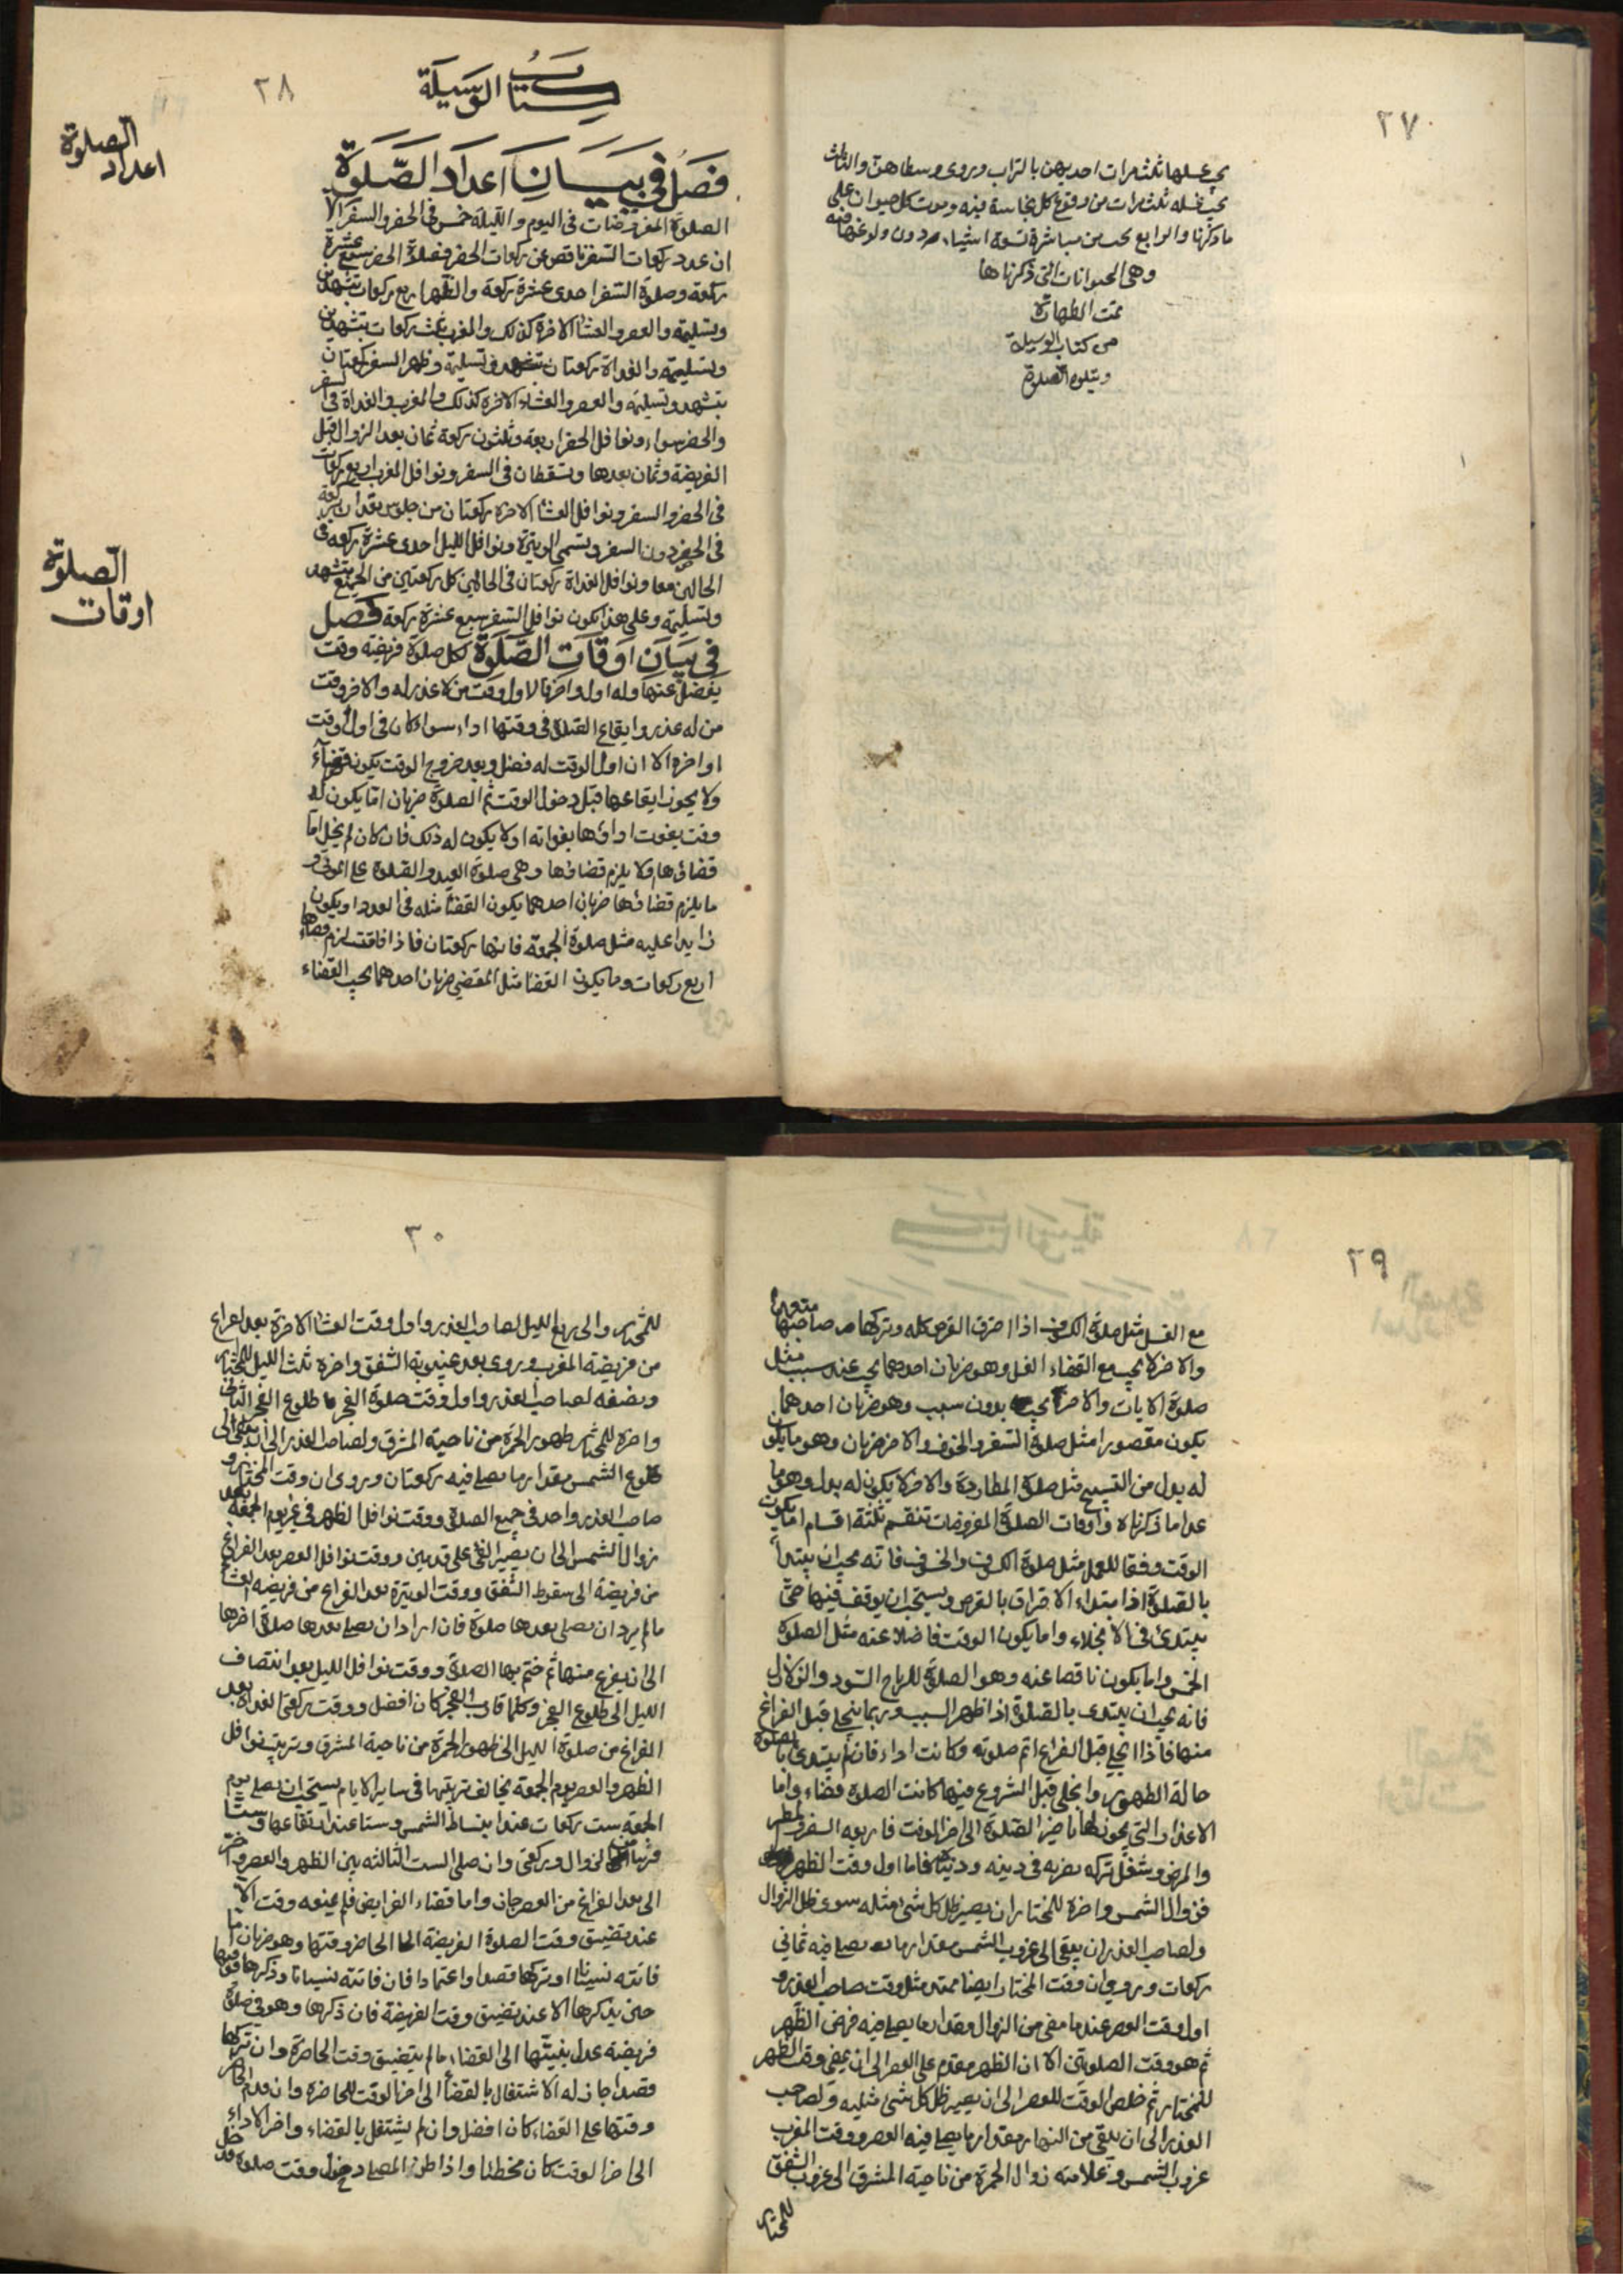 ٢٧
يجب غسلها ثلث مرات احديهن بالتراب وروى وسطاهن والثالث
يجب غسله ثلث مرات من وقوع كل نجاسة فيه وموت كل حيوان على
ما ذكرنا والرابع يجب من مباشرة تسعة اشياء بردون ولوغها فيه
وهى الحيوانات التى ذكرناها
تمت الطهارة
من كتاب الوسيلة
ويتلوه الصلوة
٢٨
كتاب الوسيلة
الصلوة
اعداد
فصل في بيان اعداد الصلوة
الصلوة المفروضات فى اليوم والليلة خمس فى الحضر والسفر الا
ان عدد ركعات السفر ناقص عن ركعات الحضر فصلاة الحضر سبع عشرة
ركعة وصلوة السفر احدى عشرة ركعة والظهر اربع ركعات بتشهدين
وتسليمة والعصر والعشاء الاخرة كذلك والمغرب ثلث ركعات بتشهدين
وتسليمة والغداة ركعتان بتشهد وتسليمة وظهر السفر ركعتان
بتشهد وتسليمة والعصر والعشاء الاخرة كذلك والمغرب والغداة فى السفر
والحضر سواء ونوافل الحضر اربعة وثلثون ركعة ثمان بعد الزوال قبل
الفريضة وثمان بعدها وتسقطان فى السفر ونوافل المغرب اربع ركعات
فى الحضر والسفر ونوافل العشاء الاخرة ركعتان من جلوس تعدان بركعة
فى الحضر دون السفر وتسمى الوتيرة ونوافل الليل احدى عشرة ركعة فى
الحالين معا ونوافل الغداة ركعتان فى الحالين كل ركعتين من الجميع بتشهد
وتسليمة وعلى هذا يكون نوافل السفر سبع عشرة ركعة فصل
الصلوة
اوقات
في بيان اوقات الصلوة لكل صلوة فريضة وقت
يفضل عنها وله اول واخر فالاول وقت من لا عذر له والاخر وقت
من له عذر وايقاع الصلاة فى وقتها اداء سواء كان فى اول الوقت
او اخره الا ان اول الوقت له فضل وبعد خروج الوقت يكون قضاء
ولا يجوز ايقاعها قبل دخول الوقت ثم الصلوة ضربان اما يكون له
وقت يفوت اداؤها بفواته او لا يكون له ذلك فان كان لم يخل اما
قضاؤها ولا يلزم قضاؤها وهى صلوة العيد والصلوة على الموتى و
ما يلزم قضاؤها ضربان احدهما يكون القضاء مثله فى العدد او يكون
زايدا عليه مثل صلوة الجمعة فانها ركعتان فاذا فاتت لزم قضاؤها
اربع ركعات وما يكون القضاء مثل المقضى ضربان احدهما يجب القضاء
٢٩
مع الغسل مثل صلوة الكسوف اذا احترق القرص كله وتركها صاحبها متعمدا
والاخر لا يجب مع القضاء الغسل وهو ضربان احدهما يجب عند سبب مثل
صلوة الايات والاخر يجب بدون سبب وهو ضربان احدهما
يكون مقصورا مثل صلوة السفر والخوف والاخر ضربان وهو ما يكون
له بدل من التسبيح مثل صلوة المطاردة والاخر لا يكون له بدل وهو ما
عدا ما ذكرناه واوقات الصلوة المفروضات تنقسم ثلثة اقسام اما يكون
الوقت وفقا للعمل مثل صلوة الكسوف والخسوف فانه يجب ان يبتدأ
بالصلوة اذا ابتداء الاحتراق بالقرص ويستحب ان يوقف فيها حتى
يبتدئ فى الانجلاء واما يكون الوقت فاضلا عنه مثل الصلوة
الخمس واما يكون ناقصا عنه وهو الصلوة للرياح السود والزلازل
فانه يجب ان يبتدى بالصلوة اذا ظهر السبب وربما ينجلى قبل الفراغ
منها فاذا انجلى قبل الفراغ اتم صلوته وكانت اداء فان لم يبتدى بالصلوة
حالة الظهور وانجلى قبل الشروع فيها كانت الصلوة قضاء واما
الاعذار التى يجوز لها تاخير الصلوة الى اخر الوقت فاربعة السفر والمطر
والمرض وشغل تركه يضر به فى دينه ودنياه فاما اول وقت الظهر
فزوال الشمس واخره للمختار ان يصير ظل كل شىء مثله سوى ظل الزوال
ولصاحب العذر ان يبقى الى غروب الشمس مقدار ما يصلى فيه ثمانى
ركعات وروى ان وقت المختار ايضا ممتد مثل وقت صاحب العذر و
اول وقت العصر عند ما مضى من الزوال مقدار ما يصلى فيه فرض الظهر
ثم هو وقت الصلوتين الا ان الظهر مقدم على العصر الى ان يمضى وقت الظهر
للمختار ثم خلص الوقت للعصر الى ان يصير ظل كل شىء مثليه ولصاحب
العذر الى ان يبقى من النهار مقدار ما يصلى فيه العصر ووقت المغرب
غروب الشمس وعلامته زوال الحمرة من ناحية المشرق الى غروب الشفق
للمختار
٣٠
للمختار والى ربع الليل لصاحب العذر واول وقت العشاء الاخرة بعد الفراغ
من فريضة المغرب وروى بعد غيبوبة الشفق واخره ثلث الليل للمختار
ونصفه لصاحب العذر واول وقت صلوة الفجر طلوع الفجر الثانى
واخره للمختار ظهور الحمرة من ناحية المشرق ولصاحب العذر الى ان يبقى الى
طلوع الشمس مقدار ما يصلى فيه ركعتان وروى ان وقت المختار و
صاحب العذر واحد فى جميع الصلوة ووقت نوافل الظهر فى غير يوم الجمعة بعد
زوال الشمس الى ان يصير الفىء على قدمين ووقت نوافل العصر بعد الفراغ
من فريضة الى سقوط الشفق ووقت الوتيرة بعد الفراغ من فريضة العشاء
ما لم يرد ان يصلى بعدها صلوة فان اراد ان يصلى بعدها صلوة اخرها
الى ان يفرغ منها ثم ختم بها الصلوة ووقت نوافل الليل بعد انتصاف
الليل الى طلوع الفجر وكلما قارب الفجر كان افضل ووقت ركعتى الغداة بعد
الفراغ من صلوة الليل الى ظهور الحمرة من ناحية المشرق وترتيب نوافل
الظهر والعصر يوم الجمعة يخالف ترتيبها فى ساير الايام يستحب ان يصلى يوم
الجمعة ست ركعات عند انبساط الشمس وستا عند ارتفاعها وستا
قريبا من الزوال وركعتى وان صلى الست الثالثه بين الظهر والعصر واخر
الى بعد الفراغ من العصر جاز واما قضاء الفرايض فلم يمنعه وقت الا
عند تضيق وقت الصلوة الفريضة الحاضر وقتها وهو ضربان اما
فاتته نسيانا او تركها قصدا واعتمادا فان فاتته نسيانا وذكرها فوقتها
حين يذكرها الا عند تضيق وقت الفريضة فان ذكرها وهو فى صلوة
فريضة عدل بنيتها الى القضاء ما لم يتضيق وقت الحاضرة وان تركها
قصدا جاز له الاشتغال بالقضاء الى اخر الوقت للحاضرة وان قدم الحاضر
وقتها على القضاء كان افضل وان لم يشتغل بالقضاء واخر الاداء
الى اخر الوقت كان مخطئا واذا ظن المصلى دخول وقت صلوة قد دخل